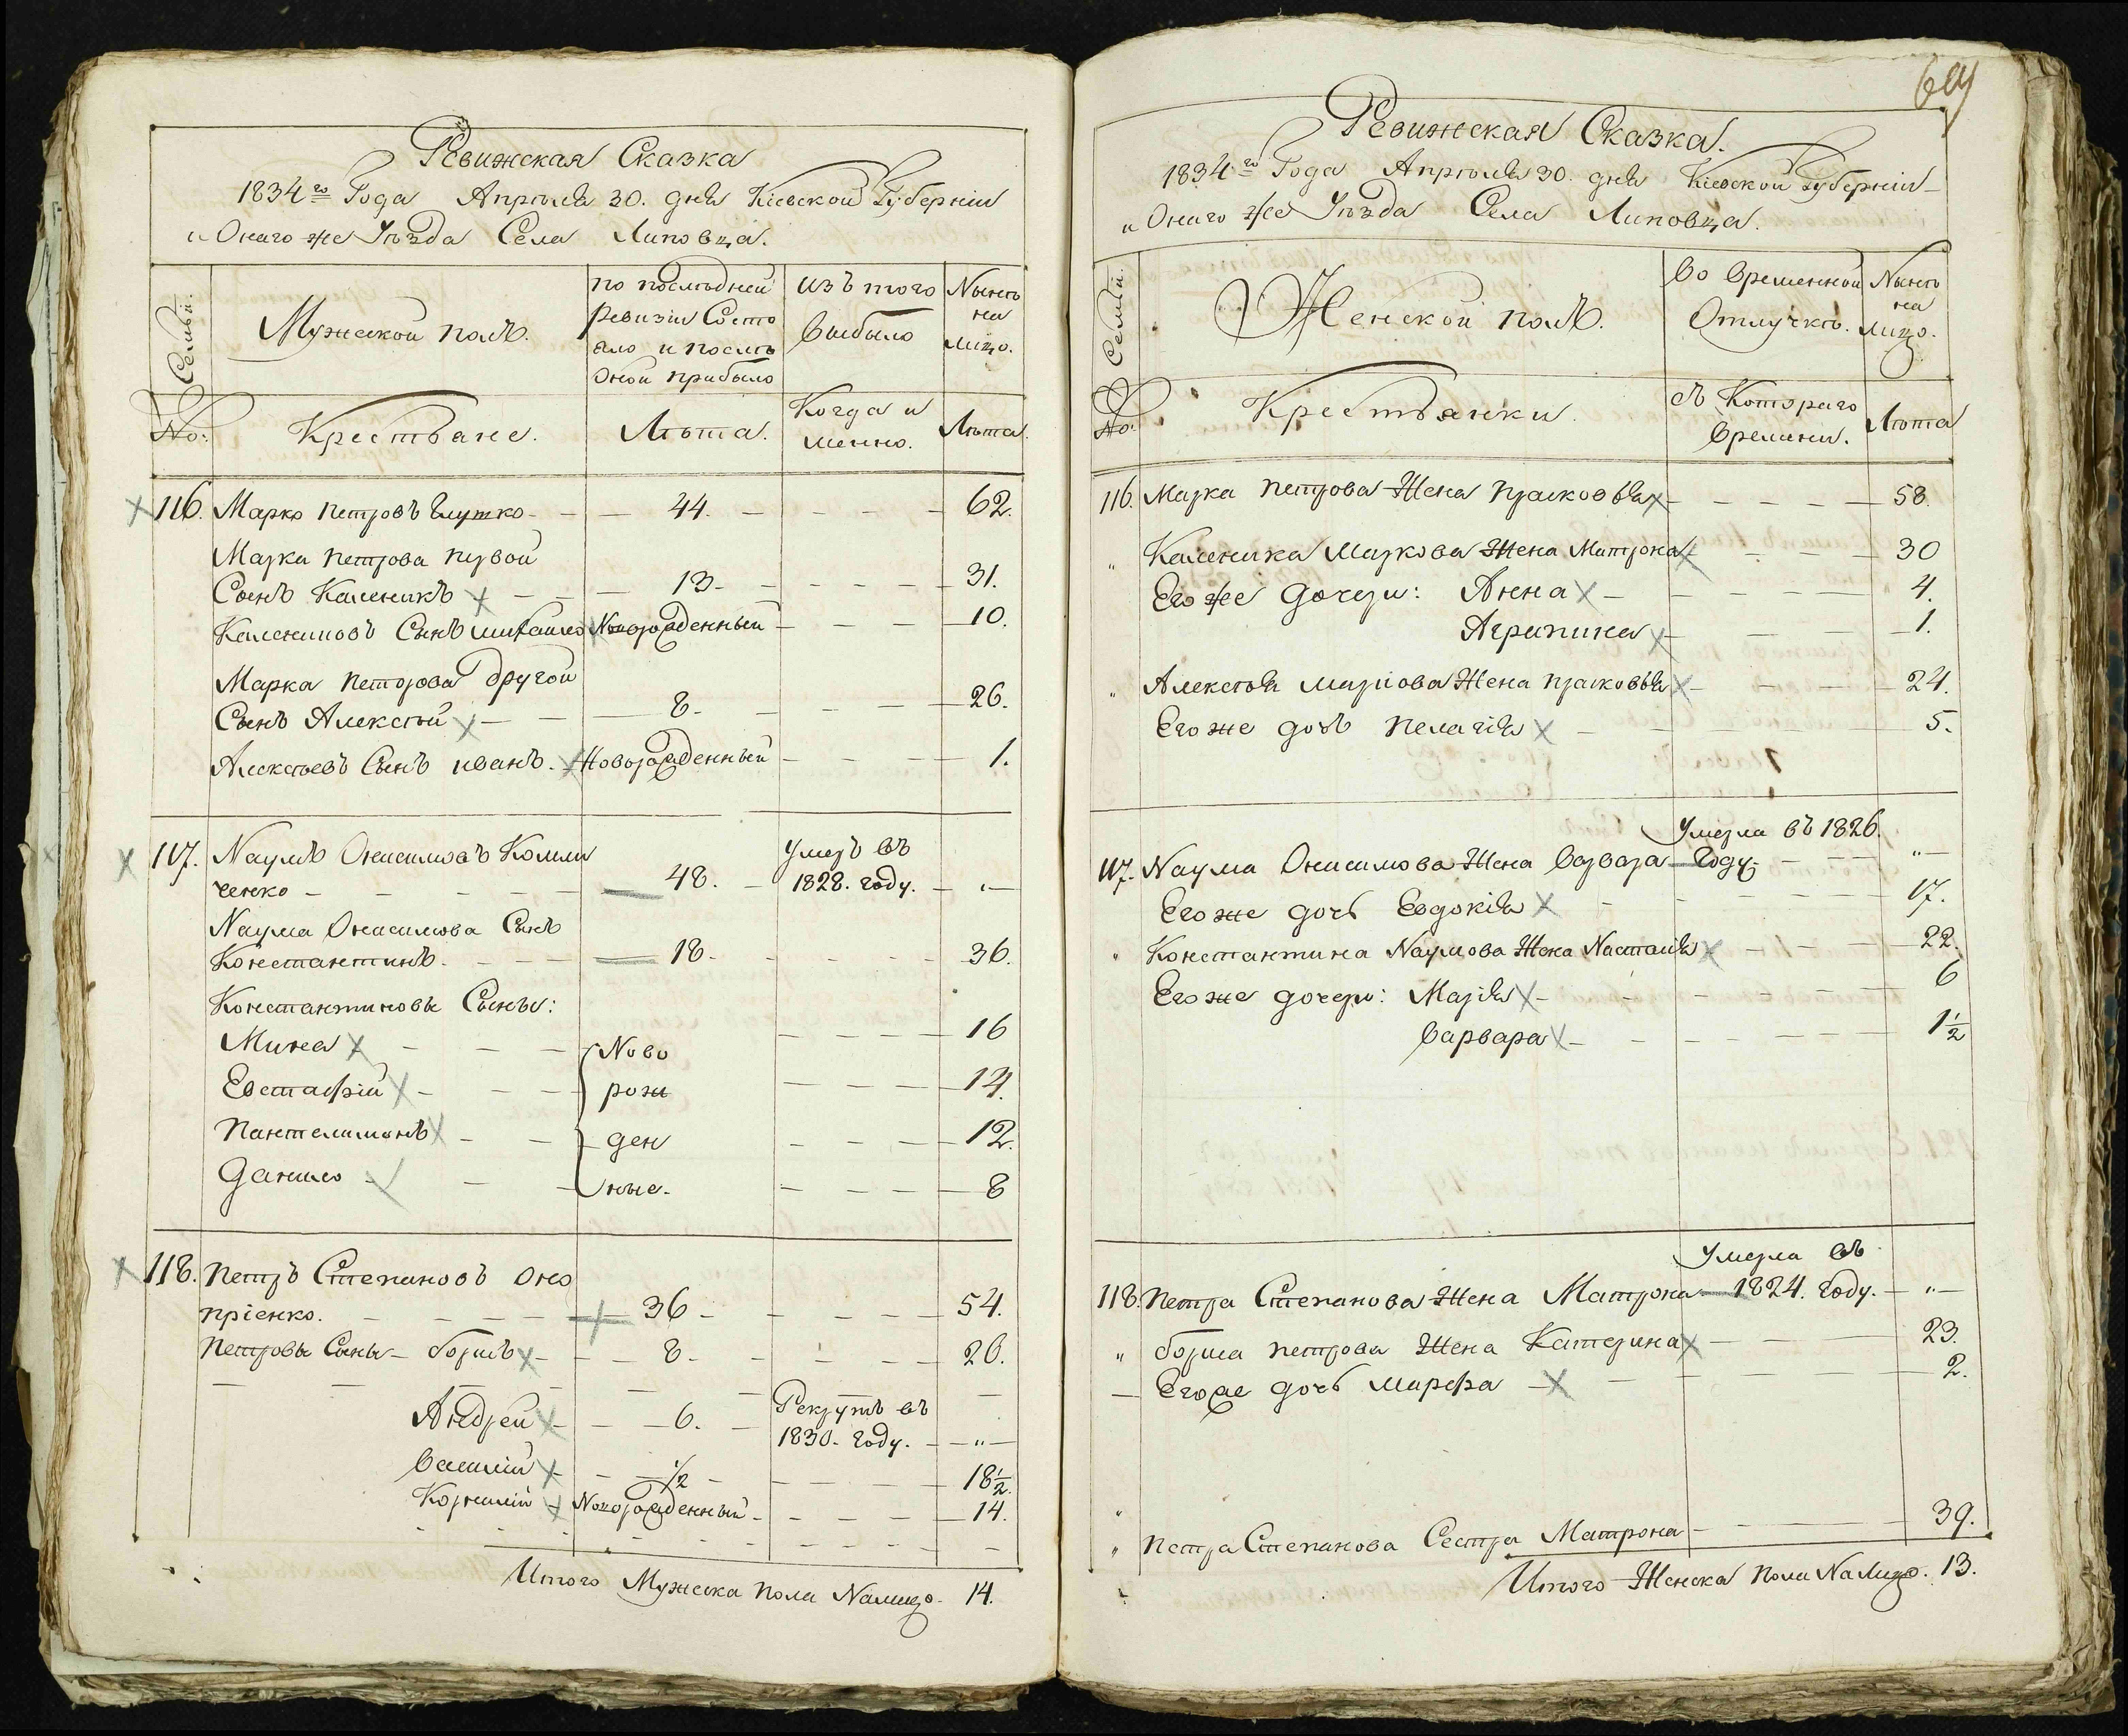 Ревижская Сказка
1834го Года Апрѣля 30. дня Кіевской Губерніи
и Онаго же Уѣзда Села Липовца.
Семьи.
Мужеской полъ.
по послѣдней
ревизіи Состо
яло и послѣ
Оной прибыло
изъ того
выбыло
Нынѣ
на
лицо.
No:
Крестьяне.
Лѣта.
Когда и
менно.
Лѣта.
116. Марко Петровъ Глутко - 44. - 62.
Марка Петрова первой
Сынъ Каленикъ - 13 - 31.
Калениковъ Сынъ Михайло Новорожденный - 10.
Марка Петрова другой
Сынъ Алексѣй - 8 - 26.
Алексѣевъ Сынъ Иванъ. Новорожденный - 1.
117. Наумъ Онисимовъ
ченко - 48. - умеръ въ 1828. году. - "
Наума Онисимова Сынъ
Константинъ. - 18. - 36.
Константиновы Сыны:
Мина - Ново - 16
Евстафій - рож - 14.
Пантелимонъ - ден - 12.
Данило - ные. - 8
118. Петръ Степановъ Оно
пріенко. - 36 - 54.
Петровы Сыны - Борисъ - 8. - 26.
Андрей - 6. - Рекрутъ въ
1830. году. - "
Василій - 1/2 - 18 1/2.
Корнилій - Новорожденный - 14.
Итого Мужеска пола Налицо - 14.
64
Ревижская Сказка.
1834го Года Апрѣля 30. дня Кіевской Губерніи
и Онаго же Уѣзда Села Липовца.
Семьи.
Женской полъ.
Во временной
Отлучкѣ.
Нынѣ
на
лицо.
No:
Крестьянки.
съ Котораго
времени.
Лѣта
116. Марка Петрова Жена Прасковья - 58.
" Каленика Маркова Жена Матрона - 30
Его же дочери: Анна - 4.
Агрипина - 1.
" Алексѣя Маркова Жена Прасковья - 24.
Его же дочь Пелагія - 5.
Умерла въ 1826.
117. Наума Онисимова Жена Варвара - Году. - "
Его же дочь Евдокія - 17.
" Константина Наумова Жена Насталія - 22.
Его же дочери: Марія - 6
Варвара - 1 1/2
Умерла въ
118. Петра Степанова Жена Матрона - 1824. году. - "
" Бориса Петрова Жена Катерина - 23.
Его же дочь Марфа - 2.
" Петра Степанова Сестра Матрона - 39.
Итого Женска пола Налицо. 13.